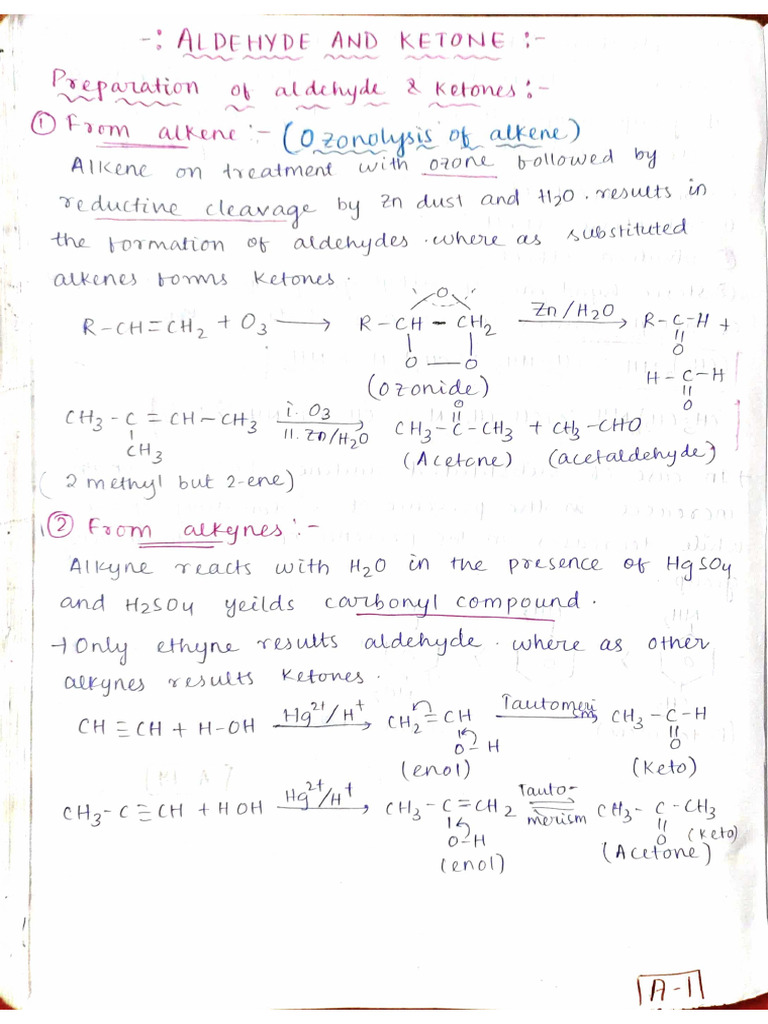 -: ALDEHYDE AND KETONE :-
Preparation of aldehyde & Ketones:-
① From alkene:- (Ozonolysis of alkene)
Alkene on treatment with ozone followed by
reductive cleavage by Zn dust and H2O. results in
the formation of aldehydes. where as substituted
alkenes forms Ketones.
R-CH=CH2 + O3 ⟶ R-CH-CH2 O O O Zn/H2O ⟶ R-C-H +
O
H-C-H
O
(Ozonide)
CH3-C=CH-CH3 i. O3 ii. Zn/H2O ⟶ CH3-C-CH3 + CH3-CHO
CH3 O
(Acetone) (acetaldehyde)
(2 methyl but 2-ene)
② From alkynes:-
Alkyne reacts with H2O in the presence of HgSO4
and H2SO4 yeilds carbonyl compound.
→ Only ethyne results aldehyde. where as other
alkynes results Ketones.
CH≡CH + H-OH Hg2+/H+ ⟶ CH2=CH Tautomerism ⟶ CH3-C-H
O-H O
(enol) (Keto)
CH3-C≡CH + HOH Hg2+/H+ ⟶ CH3-C=CH2 Tauto-merism ⇌ CH3-C-CH3
O-H O (Keto)
(enol) (Acetone)
A-1